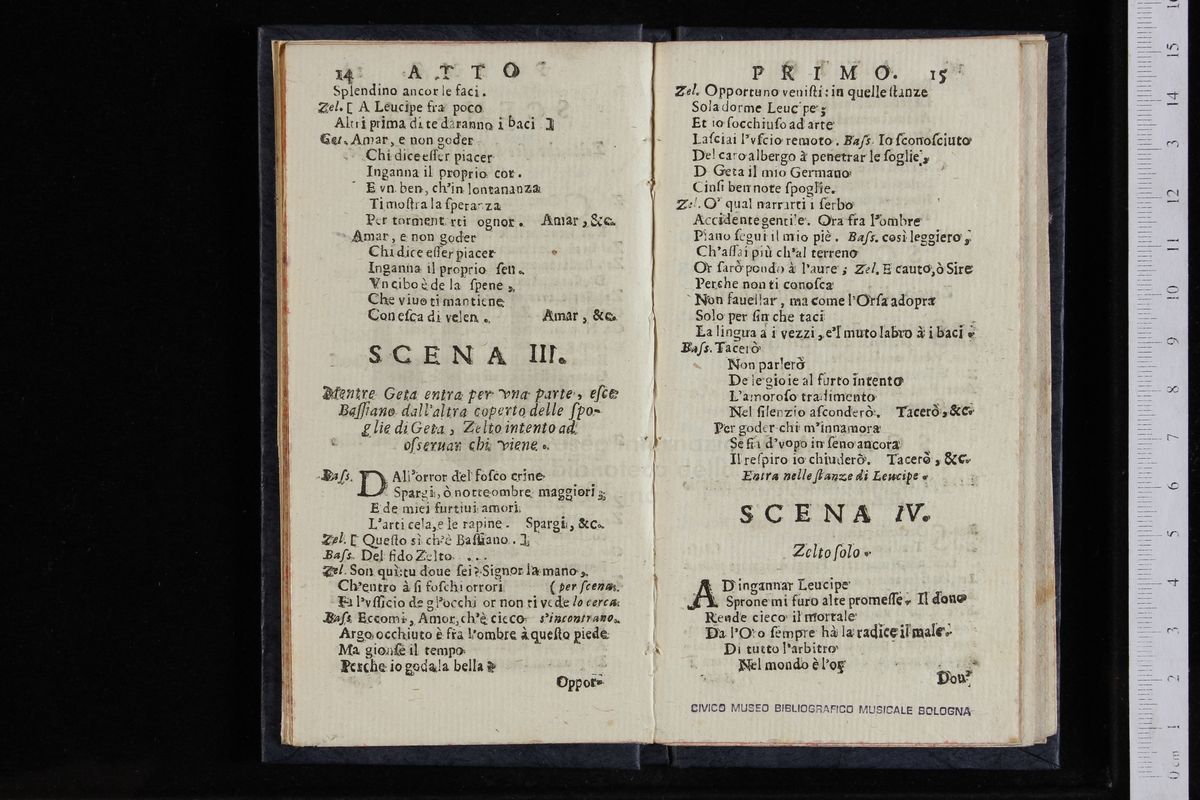 14 ATTO
Splendino ancor le faci.
Zel. [ A Leucipe fra poco
Altri prima di te daranno i baci ]
Get. Amar, e non goder
Chi dice esser piacer
Inganna il proprio cor.
E vn ben, ch'in lontananza
Ti mostra la speranza
Per torment rti ognor. Amar, &c.
Amar, e non goder
Chi dice esser piacer
Inganna il proprio sen.
Vn cibo è de la spene,
Che viuo ti mantiene
Con esca di velen. Amar, &c.
SCENA III.
Mentre Geta entra per vna parte, esce
Bassiano dall'altra coperto delle spo-
glie di Geta, Zelto intento ad
osseruar chi viene.
Bass. DAll'orror del fosco crine
Spargi, ò notte ombre maggiori;
E de miei furtiui amori
L'arti cela, e le rapine. Spargi, &c.
Zel. [ Questo sì ch'è Bassiano. ]
Bass. Del fido Zelto ...
Zel. Son quì: tu doue sei? Signor la mano,
Ch'entro à sì foschi orrori (per scena.
Fa l'vfficio de gl'occhi or non ti vede lo cerca.
Bass. Eccomi, Amor, ch'è cieco s'incontrano.
Argo occhiuto è fra l'ombre à questo piede
Ma gionse il tempo
Perche io goda la bella?
Oppor-
PRIMO. 15
Zel. Opportuno venisti: in quelle stanze
Sola dorme Leucipe;
Et io socchiuso ad arte
Lasciai l'vscio remoto. Bass. Io sconosciuto
Del caro albergo à penetrar le soglie,
D Geta il mio Germano
Cinsi ben note spoglie.
Zel. O' qual narrarti i serbo
Accidente gentile. Ora fra l'ombre
Piano segui il mio piè. Bass. così leggiero,
Ch'assai più ch'al terreno
Or sarò pondo à l'aure; Zel. E cauto, ò Sire
Perche non ti conosca
Non fauellar, ma come l'Orsa adopra
Solo per sin che taci
La lingua a i vezzi, e'l muto labro à i baci.
Bass. Tacerò
Non parlerò
De le gioie al furto intento
L'amoroso tradimento
Nel silenzio asconderò. Tacerò, &c.
Per goder chi m'innamora
Se fia d'vopo in seno ancora
Il respiro io chiuderò. Tacerò, &c.
Entra nelle stanze di Leucipe.
SCENA IV.
Zelto solo.
AD ingannar Leucipe
Sprone mi furo alte promesse. Il dono
Rende cieco il mortale
Da l'Oro sempre hà la radice il male.
Di tutto l'arbitro
Nel mondo è l'or
Dou'
CIVICO MUSEO BIBLIOGRAFICO MUSICALE BOLOGNA